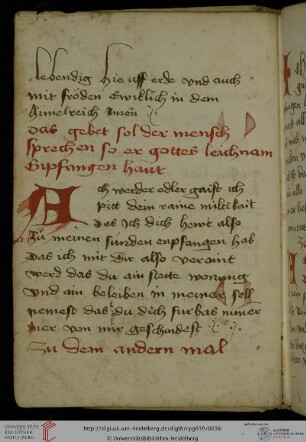 lebendig hie uff erde und auch
mit fröden Ewiklich in dem
himelreich Amen
das gebet sol der mensch
sprechen so er gottes leichnam
Enpfangen haut
Ach werder edler gaist ich
pitt dein raine miltikait
das Ich dich hewt also
Zu meinen sunden enpfangen hab
das ich mit Dir also veraint
werd das du ain stete wonung
und ain beleiben in meiner sell
nemest das du Dich furbas nimer
mer von mir geschaidest
Zu dem andern mal
UNIVERSITÄTS-
BIBLIOTHEK
HEIDELBERG
http://digi.ub.uni-heidelberg.de/diglit/cpg639/0036
© Universitätsbibliothek Heidelberg